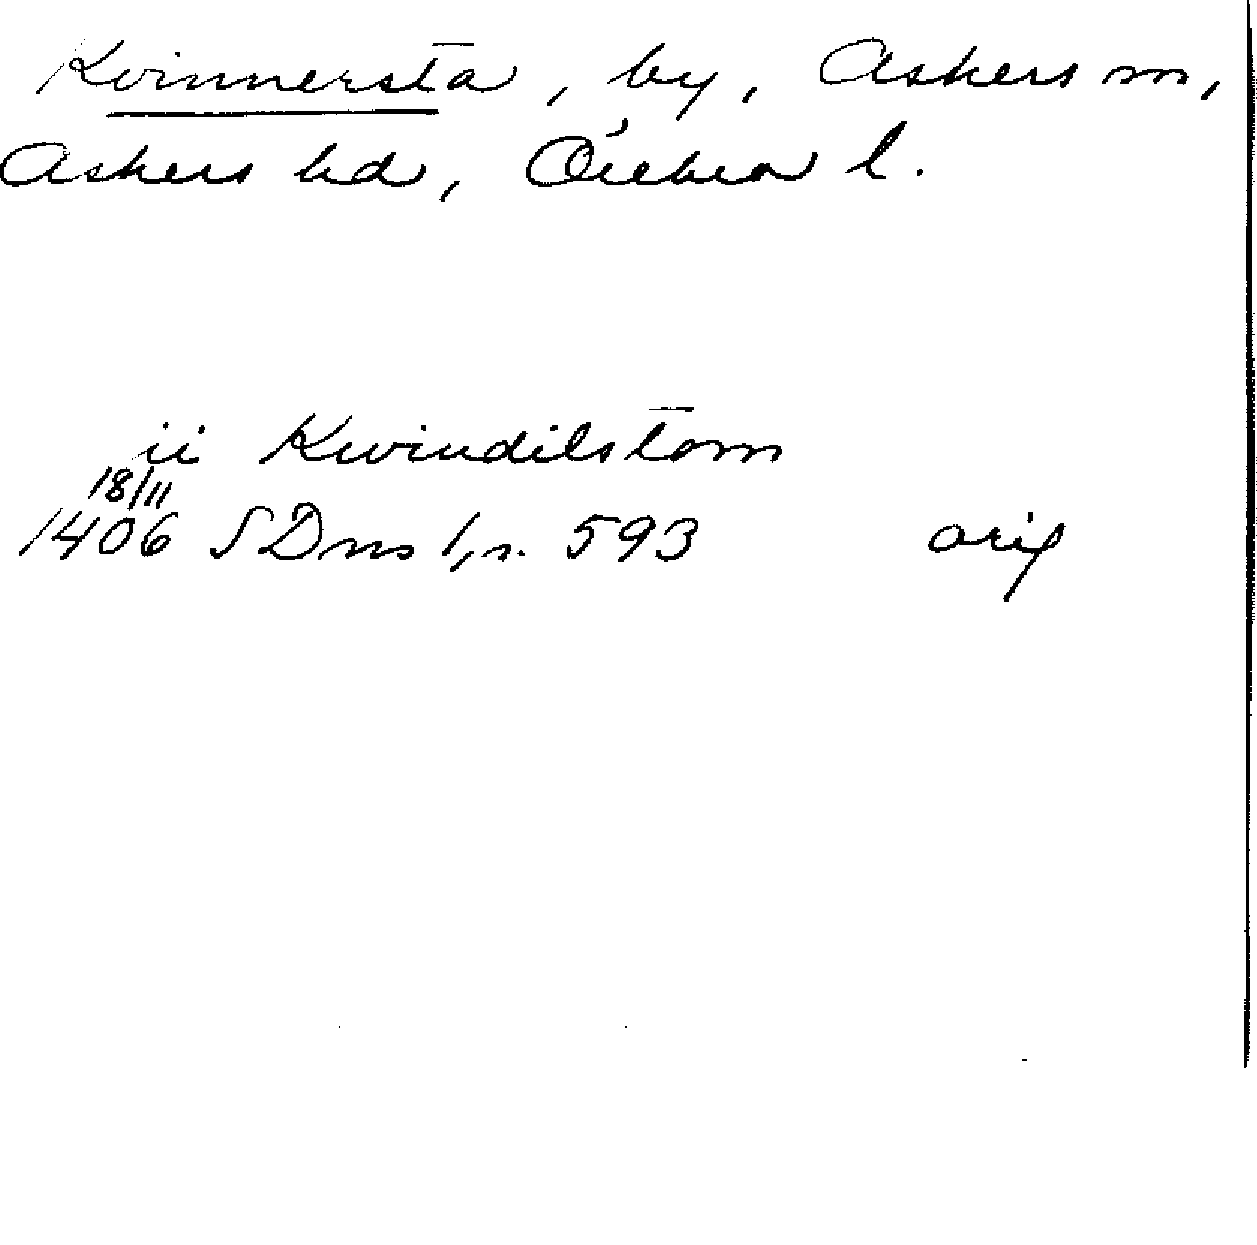 Kvinnersta, by, Askers sn,
Askers hd, Örebro l.
ii Kwindilstom
18/11
1406 SDns 1, s. 593 orig